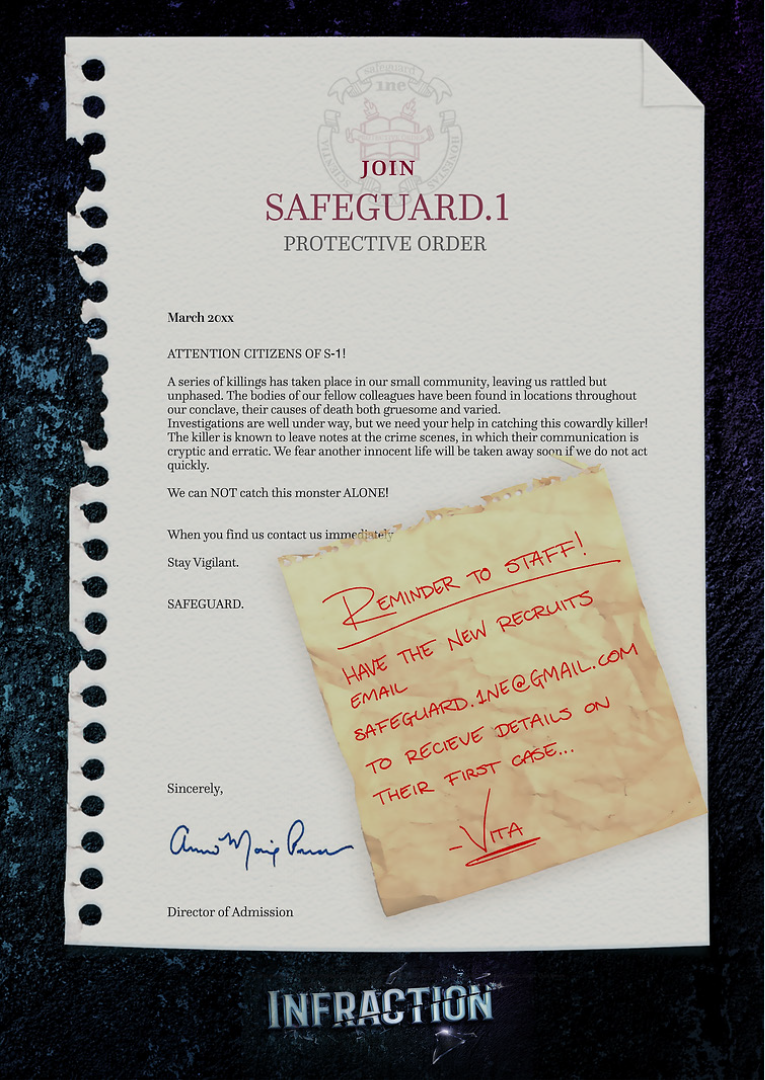 Safeguard
1ne
SCIENTIA
HONESTAS
JOIN
SAFEGUARD.1
PROTECTIVE ORDER
March 20xx
ATTENTION CITIZENS OF S-1!
A series of killings has taken place in our small community, leaving us rattled but
unphased. The bodies of our fellow colleagues have been found in locations throughout
our conclave, their causes of death both gruesome and varied.
Investigations are well under way, but we need your help in catching this cowardly killer!
The killer is known to leave notes at the crime scenes, in which their communication is
cryptic and erratic. We fear another innocent life will be taken away soon if we do not act
quickly.
We can NOT catch this monster ALONE!
When you find us contact us immediately
Stay Vigilant.
SAFEGUARD.
REMINDER TO STAFF!
HAVE THE NEW RECRUITS
EMAIL
SAFEGUARD.1NE@GMAIL.COM
TO RECIEVE DETAILS ON
THEIR FIRST CASE...
-VITA
Sincerely,
Director of Admission
INFRACTION